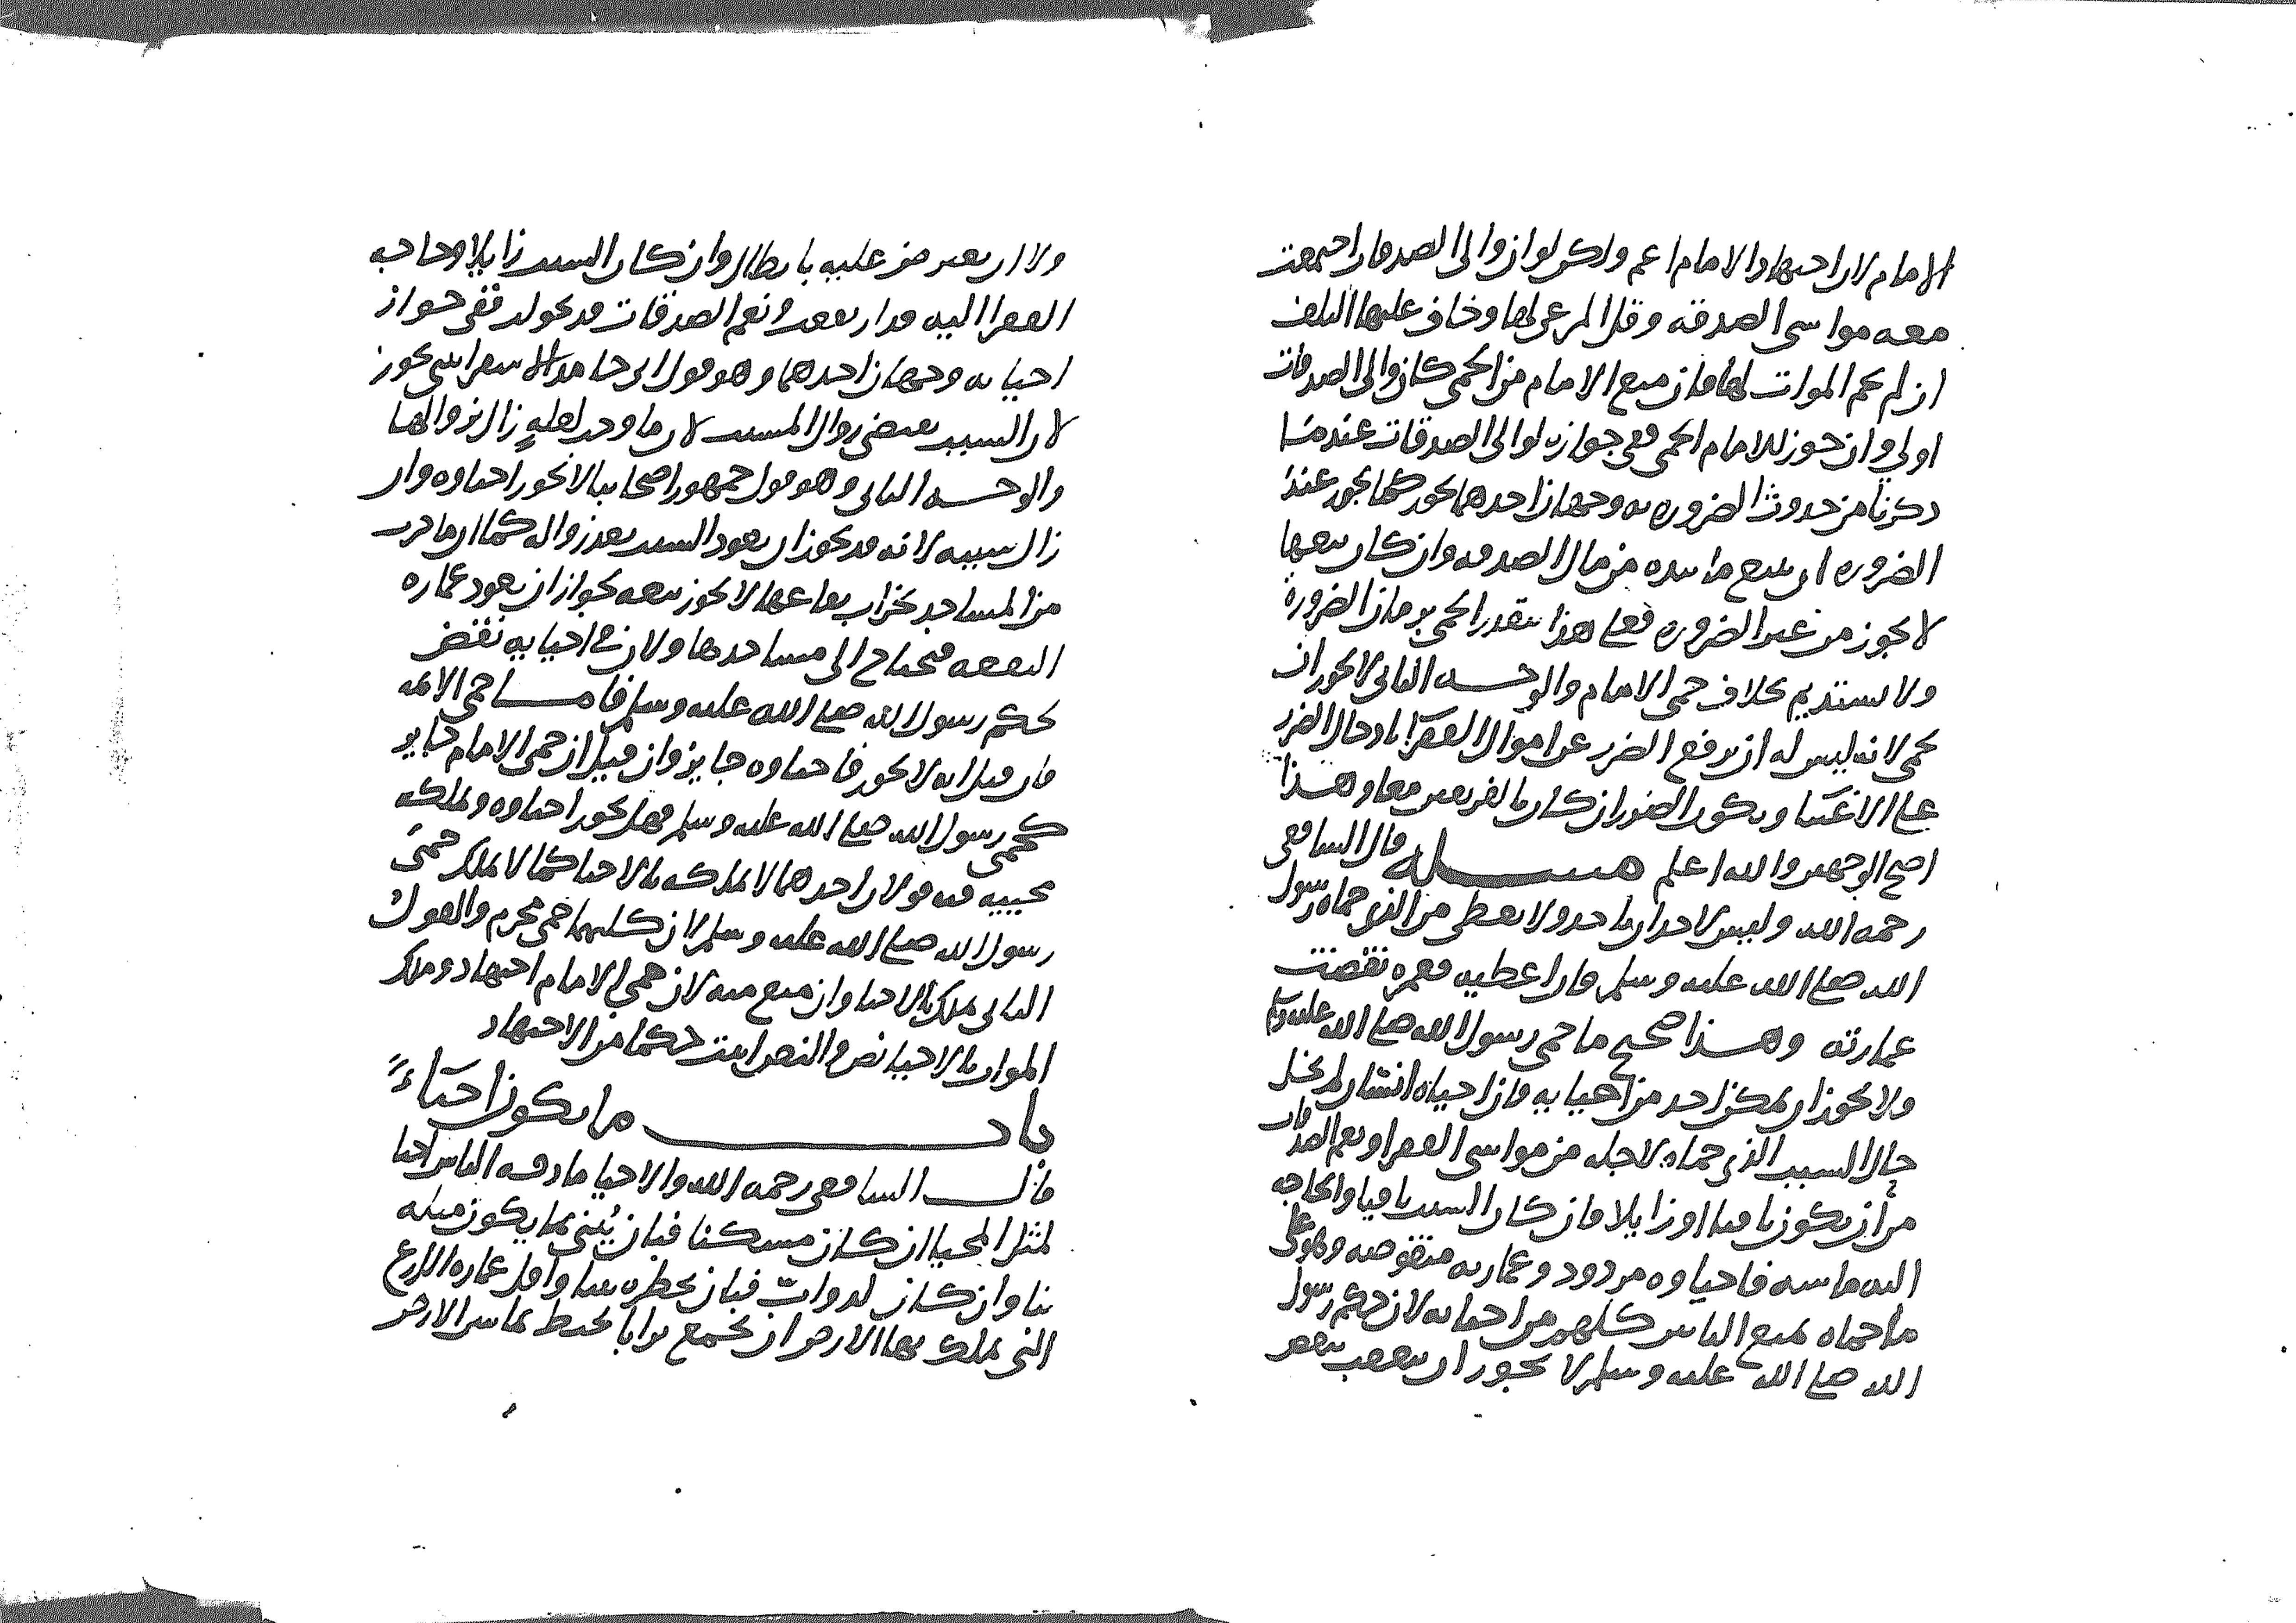 الامام لان اجتهاد الامام اعم ولكن لو ان والى الصدقات اجتمعت
معه مواشى الصدقة وقل المرعى لها وخاف عليها التلف
ان لم يحم الموات لها فان منع الامام من الحمى كان والى الصدقات
اولى وان جوز للامام الحمى ففى جوازه لوالى الصدقات عند ما
ذكرنا من حدوث الضروره به وجهان احدهما يجوز كما يجوز عند
الضروره ان يبيع ما بيده من مال الصدقه وان كان بيعها
لا يجوز من غير الضروره فعلى هذا يتقدر الحمى بزمان الضرورة
ولا يستديم بخلاف حمى الامام والوجه الثانى لا يجوز ان
يحمى لانه ليس له ان يرفع الضرر عن اموال الفقرا بادخال الضرر
على الاغنيا ويكون الضرر ان كان بالفريقين معا وهذا
اصح الوجهين والله اعلم مسله قال الشافعى
رحمه الله وليس لاحد ان ياخذ ولا يعطى من الذى حماه رسول
الله صلى الله عليه وسلم فان اعطيه فعمره نقضت
عمارته وهذا صحيح ما حمى رسول الله صلى الله عليه وسلم
ولا يجوز ان يمكن احد من احيايه فان احياه انسان لم يخل
حال السبب الذى حماه لاجله من مواشى الفقرا ونعم الصدقات
من ان يكون باقيا او زايلا فان كان السبب باقيا والحاجه
اليه ماسه فاحياوه مردود وعمارته منقوضه وهو على
ما حماه يمنع الناس كلهم من احيايه لان حكم رسول
الله صلى الله عليه وسلم لا يجوز ان يتعقب بنقض
ولا ان يعترض عليه بابطال وان كان السبب زايلا وحاجه
الفقرا اليه قد ارتفعت ونعم الصدقات قد تحولت ففى جواز
احيايه وجهان احدهما وهو قول ابى حامد الاسفراينى يجوز
لان السبب يقتضى زوال المسبب لان ما وجد لعلةٍ زال بزوالها
والوجه الثانى وهو قول جمهور اصحابنا لا يجوز احياوه وان
زال سببه لانه قد يجوز ان يعود السبب بعد زواله كما ان ما خرب
من المساجد بخراب بقاعها لا يجوز بيعه لجواز ان يعود عماره
البقعه فيحتاج الى مساجدها ولان فى احيايه نقض
لحكم رسول الله صلى الله عليه وسلم فاما حمى الائمه
فان قيل انه لا يجوز فاحياوه جايز وان قيل ان حمى الامام جايز
كحمى رسول الله صلى الله عليه وسلم فهل يجوز احياوه ويملكه
محييه فيه قولان احدهما لا يملكه بالاحيا كما لا يملك حمى
رسول الله صلى الله عليه وسلم لان كليهما حمى محرم والقول
الثانى يملك بالاحيا وان منع منه لان حمى الامام اجتهاد وملك
الموات بالاحيا نص والنص اثبت حكما من الاجتهاد
باب ما يكون احياءً
قال الشافعى رحمه الله والاحيا ما عرفه الناس احيا
لمثل المحيا ان كان مسكنا فبان يُبنى بما يكون مثله
بنا وان كان لدواب فبان يحظره بينا واقل عماره الزرع
التى يملك بها الارض ان يجمع ترابا يحيط بما بين الارض